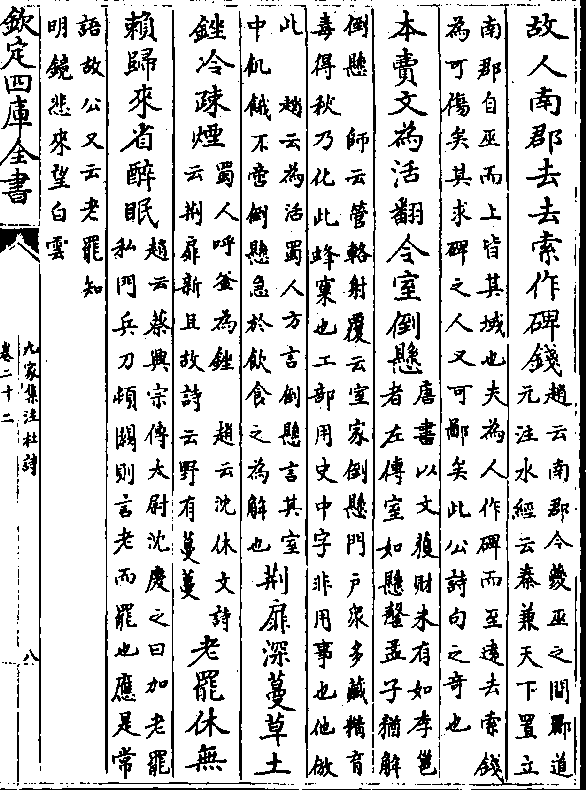 故人南郡去去索作碑錢趙云南郡今夔巫之間酈道
元注水經云秦兼天下置立
南郡自巫而上皆其域也夫為人作碑而至遠去索錢
為可傷矣其求碑之人又可鄙矣此公詩句之竒也
本賣文為活翻令室倒懸唐書以文獲財未有如李邕
者左傳室如懸罄孟子猶解
倒懸 師云管輅射覆云室家倒懸門戶衆多藏精育
毒得秋乃化此蜂窠也工部用史中字非用事也他倣
此 趙云為活蜀人方言倒懸言其室
中飢餓不啻倒懸急於飲食之為解也荆扉深蔓草土
銼冷疎煙蜀人呼釜為銼 趙云沈休文詩
云荆扉新且故詩云野有蔓蔓老罷休無
賴歸來省醉眠趙云蔡興宗傳太尉沈慶之曰加老罷
私門兵刀頓闕則言老而罷也應是常
語故公又云老罷知
明鏡悲來望白雲
欽定四庫全書
九家集注杜詩
卷二十二
八